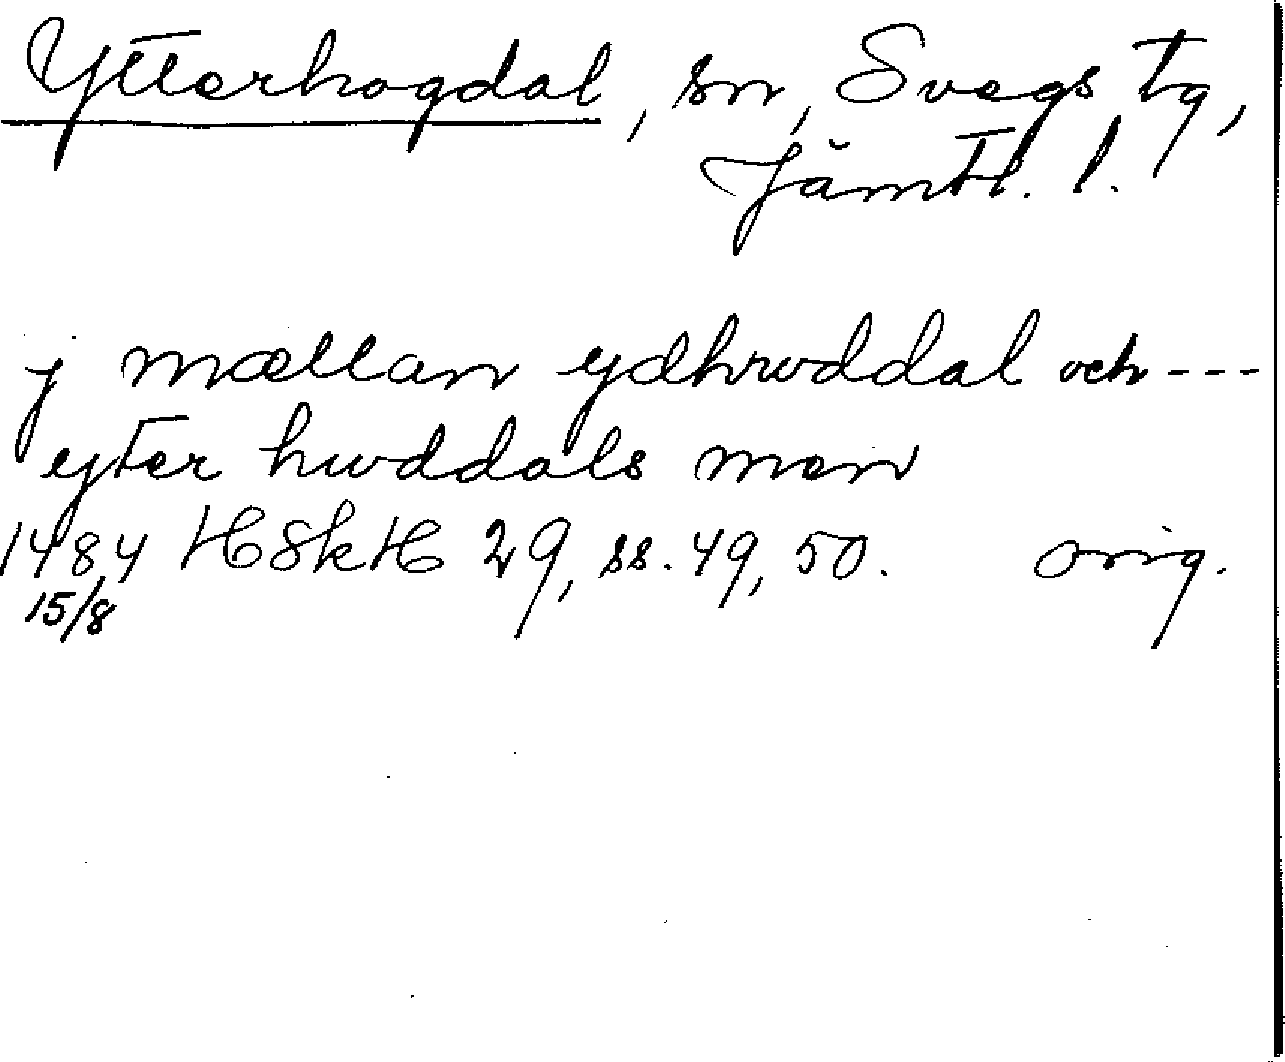 Ytterhogdal, sn, Svegs tg,
Jämtl. l.
j mællan ydhrwddal och ---
yter hwddals men
1484 HSkH 29, ss. 49, 50. orig.
15/8